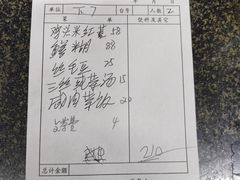 月 日
单位 下7 台号 人数 2
菜单 饮料及其它
鸡头米红菱 58
鳝糊 88
丝毛豆 25
三丝莼菜汤 15
咸肉菜饭 20
餐费 4
总计金额 210